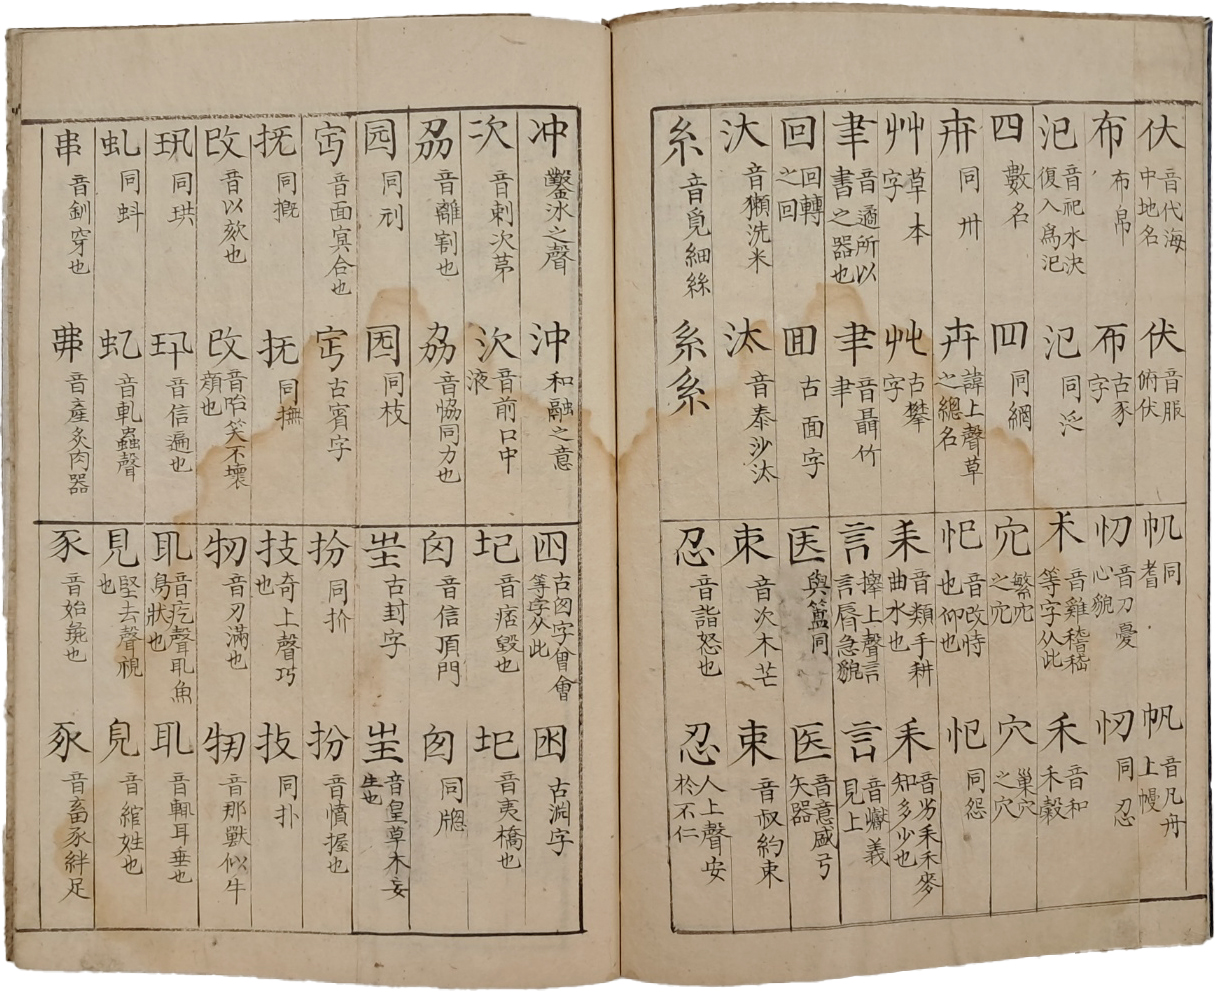 㐲 音代海中地名 伏 音服俯伏
布 布帛 布 古豕字
汜 音祀水決復入爲汜 氾 同泛
四 數名 罒 同網
卅 同卅 卉 諱上聲草之總名
艸 草本字 𠬜 古攀字
聿 音遹所以書之器也 肀 音聶竹聿
回 回轉之回 囬 古面字
汏 音獺洗米 汰 音泰沙汰
糸 音覓細絲 糸糸
同耆 帆 音凡舟上幔
忉 音刀憂心貌 同忍
禾 音雞稽嵇等字从此 禾 音和禾穀
宂 繁宂之宂 穴 巢穴之穴
忋 音改恃也仰也 同怨
耒 音類手耕曲水也 音劣禾禾麥知多少也
言 上聲言言唇急貌 言 義見上
匧 與簋同 医 音意盛弓矢器
朿 音次木芒 束 音叔約束
忍 音詣怒也 忍 人上聲安於不仁
冲 鑿冰之聲 沖 和融之意
次 音刺次苐 㳄 音前口中液
刕 音離割也 劦 音恊同力也
园 同刓 同枝
宀 音面㝠合也 古賓字
抚 同摡 抚 同撫
改 音以㱾也 改 音咍笑不壞顏也
玐 同珙 玐 音信遍也
虬 同蚪 虬 音軋蟲聲
串 音釧穿也 弗 音產炙肉器
囟 古囟字曾會等字从此 囦 古淵字
圮 音痞毀也 圯 音夷橋也
囟 音信頂門 囱 同牎
㞷 古封字 㞷 音皇草木妄生也
扮 同扴 扮 音憤握也
技 奇上聲巧也 同扑
牣 音刃滿也 音那獸似牛
耴 音疙聲耴魚鳥狀也 耴 音輒耳垂也
見 堅去聲視也 音綰姓也
豕 音始彘也 豖 音畜豕絆足